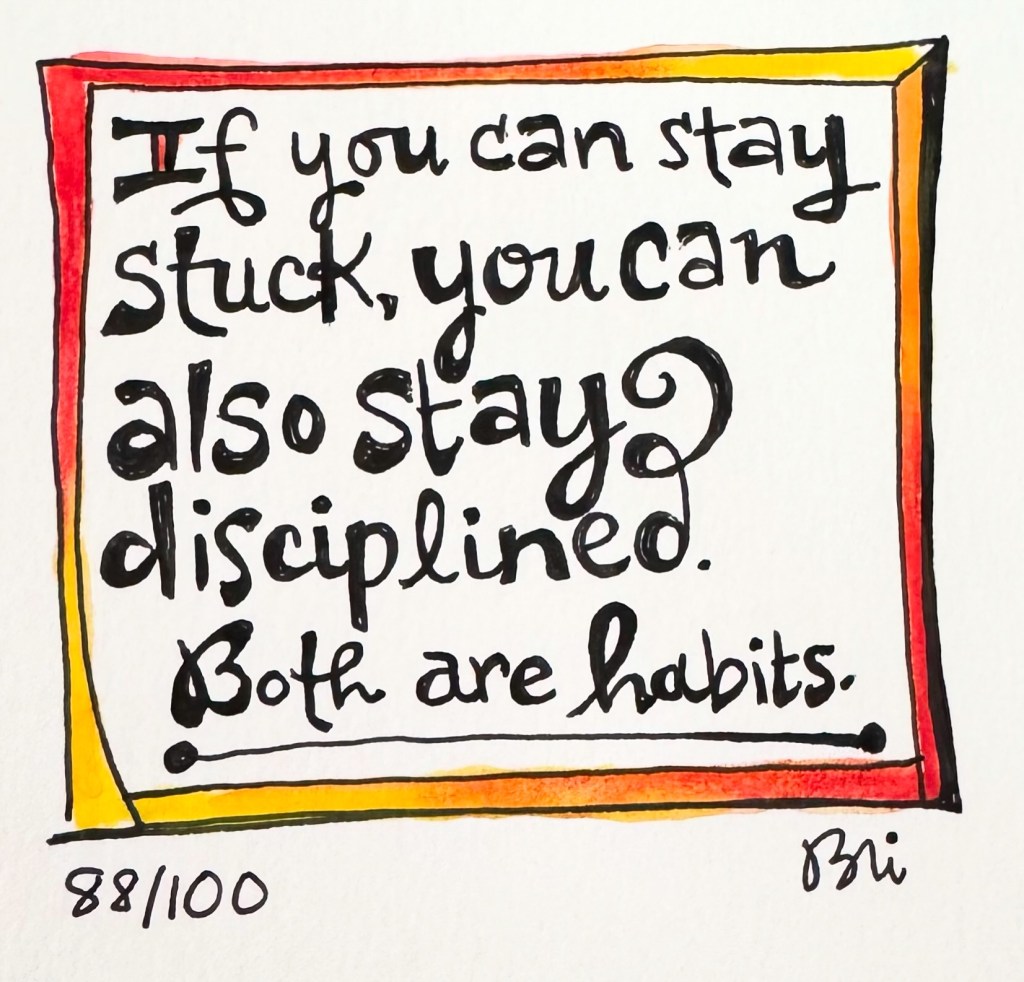 If you can stay
stuck, you can
also stay
disciplined.
Both are habits.
88/100
Bri